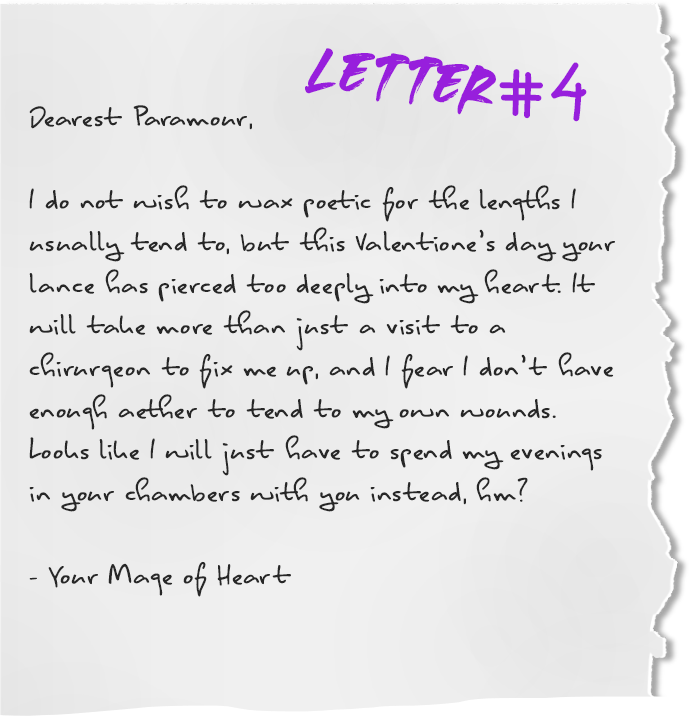 LETTER#4
Dearest Paramour,
I do not wish to wax poetic for the lengths I
usually tend to, but this Valentione's day your
lance has pierced too deeply into my heart. It
will take more than just a visit to a
chirurgeon to fix me up, and I fear I don't have
enough aether to tend to my own wounds.
Looks like I will just have to spend my evenings
in your chambers with you instead, hm?
- Your Mage of Heart